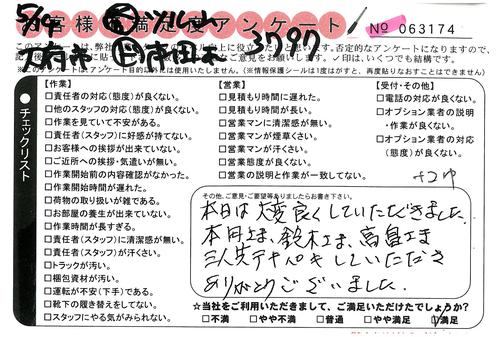 お客様満足度アンケート
№ 063174
5/14
3797
【作業】
□責任者の対応(態度)が良くない。
□他のスタッフの対応(態度)が良くない。
□作業を見ていて不安がある。
□責任者(スタッフ)に好感が持てない。
□お客様への挨拶が出来ていない。
□ご近所への挨拶・気遣いが無い。
□作業開始前の内容確認がなかった。
□作業開始時間が遅れた。
□荷物の取り扱いが雑である。
□お部屋の養生が出来ていない。
□作業時間が長すぎる。
□責任者(スタッフ)に清潔感が無い。
□責任者(スタッフ)が汗くさい。
□トラックが汚い。
□梱包資材が汚い。
□運転が不安(下手)である。
□靴下の履き替えをしてない。
□スタッフにやる気がみられない。
チェックリスト
【営業】
□見積もり時間に遅れた。
□見積もり時間が長い。
□営業マンに清潔感が無い。
□営業マンが煙草くさい。
□営業マンが汗くさい。
□営業態度が良くない。
□営業の説明と作業が一致してない。
【受付・その他】
□電話の対応が良くない。
□オプション業者の説明
・作業が良くない。
□オプション業者の対応
(態度)が良くない。
その他、ご意見・ご要望等ありましたらお書き下さい。
本日は大変良くしていただきました。
本田さま、鈴木さま、高畠さま
三人共テキパキしていただき
ありがとうございました。
☆当社をご利用いただきまして、ご満足いただけたでしょうか?
□不満 □やや不満 □普通 □やや満足 □満足